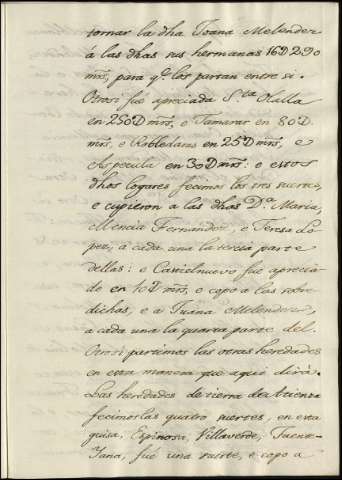 tornar la dha Joana Melendez
á las dhas sus hermanas 16D290
mrs, para q.e los partan entre si.
Otrosi fué apreciada S.ta Olalla
en 250D mrs, e Tamaras en 80D
mrs, e Robledana en 25D mrs, e
en 30D mrs: e estos
dhos logares fecimos los tres suertes,
e cupieron a las dhas D.a Maria,
Mencia Fernandez, e Teresa Lo-
pez, á cada una la tercia parte
dellas: e Castelnuevo fue aprecia-
do en 10D mrs, e copo a las sobre
dichas, e a Juana Melendez,
a cada una la quarta parte del.
Otrosi partimos las otras heredades
en esta manera que aqui dirá.
Las heredades de tierra de Atienza
fecimoslas quatro suertes, en esta
guisa, Espinosa, Villaverde, Fuenx-
Jana, fué una suerte, e copo a